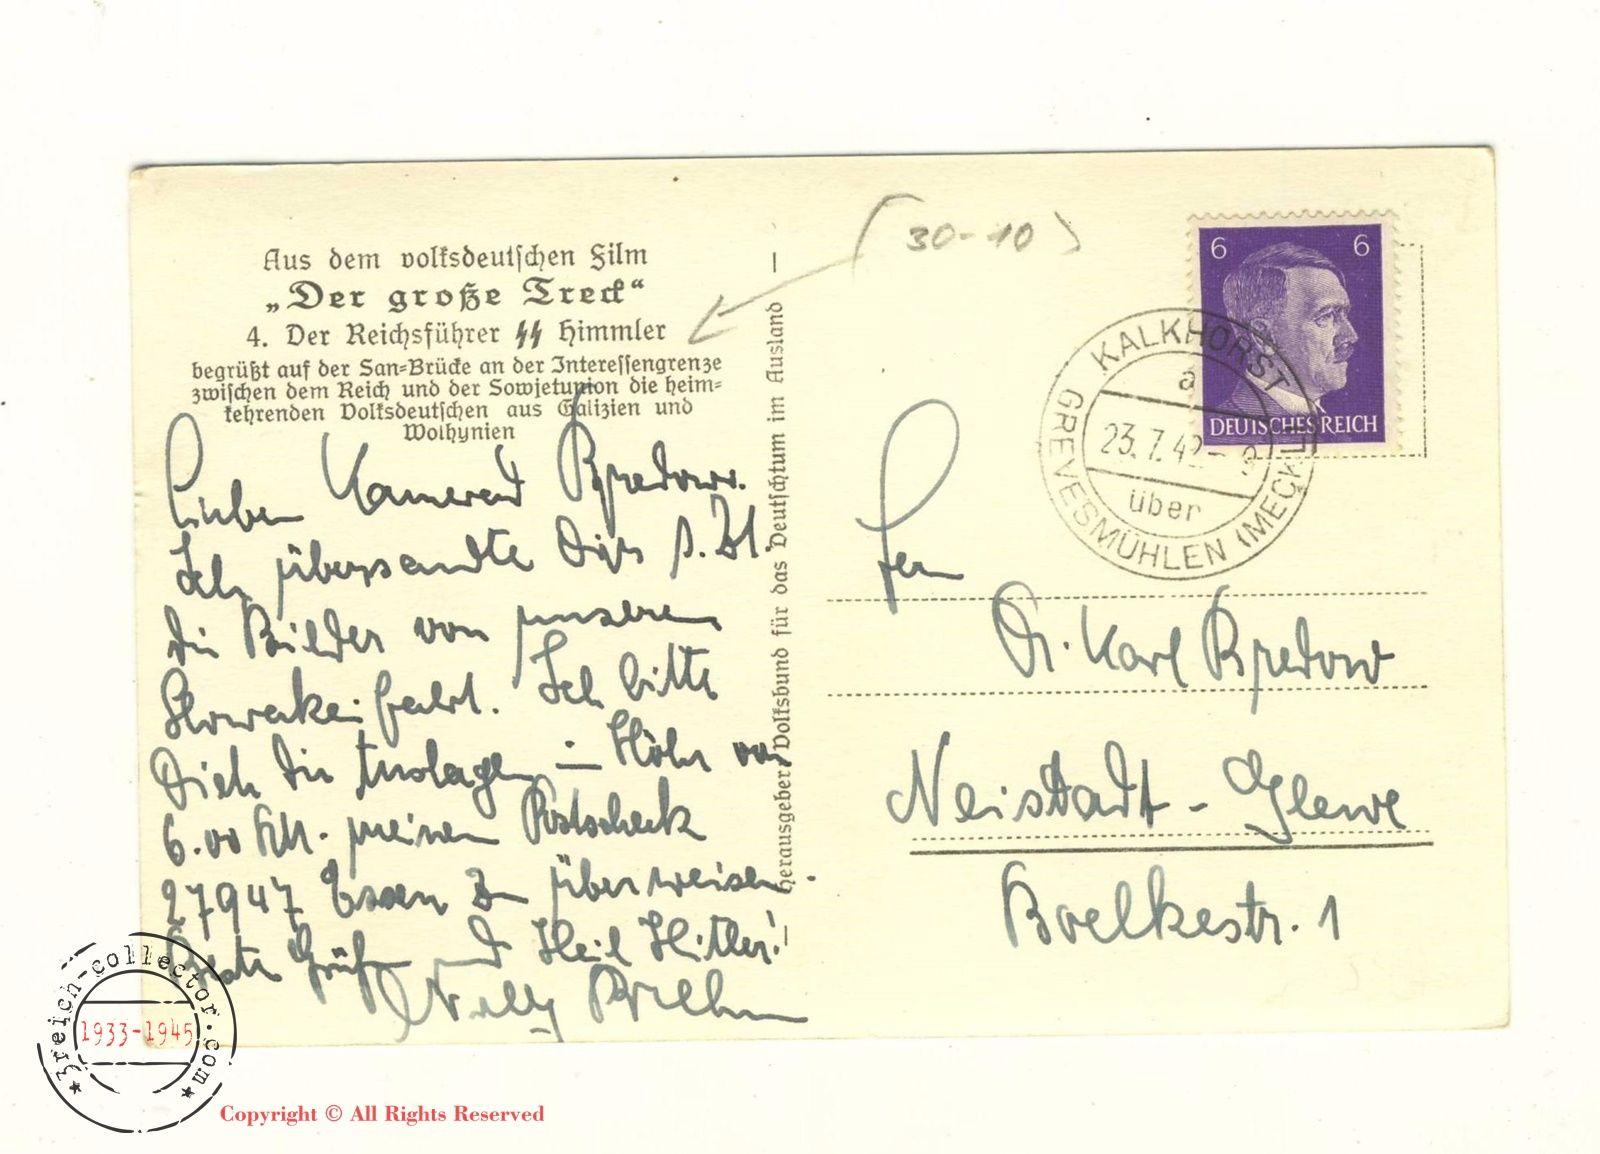 Aus dem volksdeutschen Film
„Der große Treck“
4. Der Reichsführer SS Himmler
begrüßt auf der San-Brücke an der Interessengrenze
zwischen dem Reich und der Sowjetunion die heim-
kehrenden Volksdeutschen aus Galizien und
Wolhynien
Lieber Kamerad Bredow.
Ich übersandte Dir s. Zt.
die Bilder von unserer
Slowakeifahrt. Ich bitte
Dich die Auslagen in Höhe von
6.00 RM. meinem Postscheck
27947 Essen zu überweisen.
Beste Grüße und Heil Hitler!
Willy
Herausgeber: Volksbund für das Deutschtum im Ausland
(30-10)
6 6
DEUTSCHES REICH
KALKHORST
a
23.7.42
über
GREVESMÜHLEN (MECKL)
Herrn
Dr. Karl Bredow
Neustadt-Glewe
Boelkestr. 1
3reich-collector.com
1933-1945
Copyright © All Rights Reserved